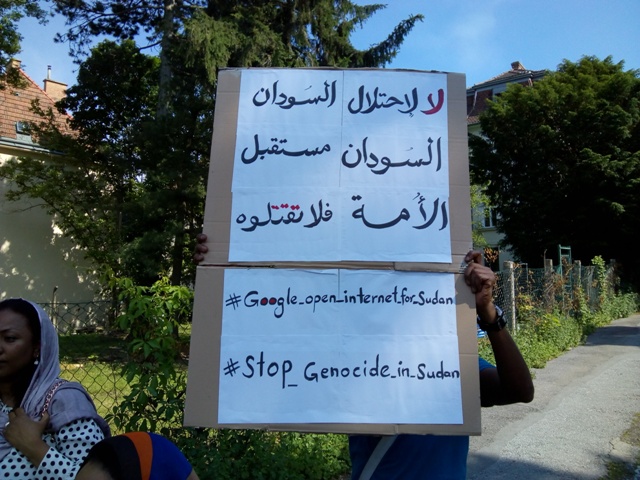 لا لإحتلال السودان
السُودان مستقبل
الأُمة فلا تقتلوه
#Google_open_internet_for_Sudan
#Stop_Genocide_in_Sudan